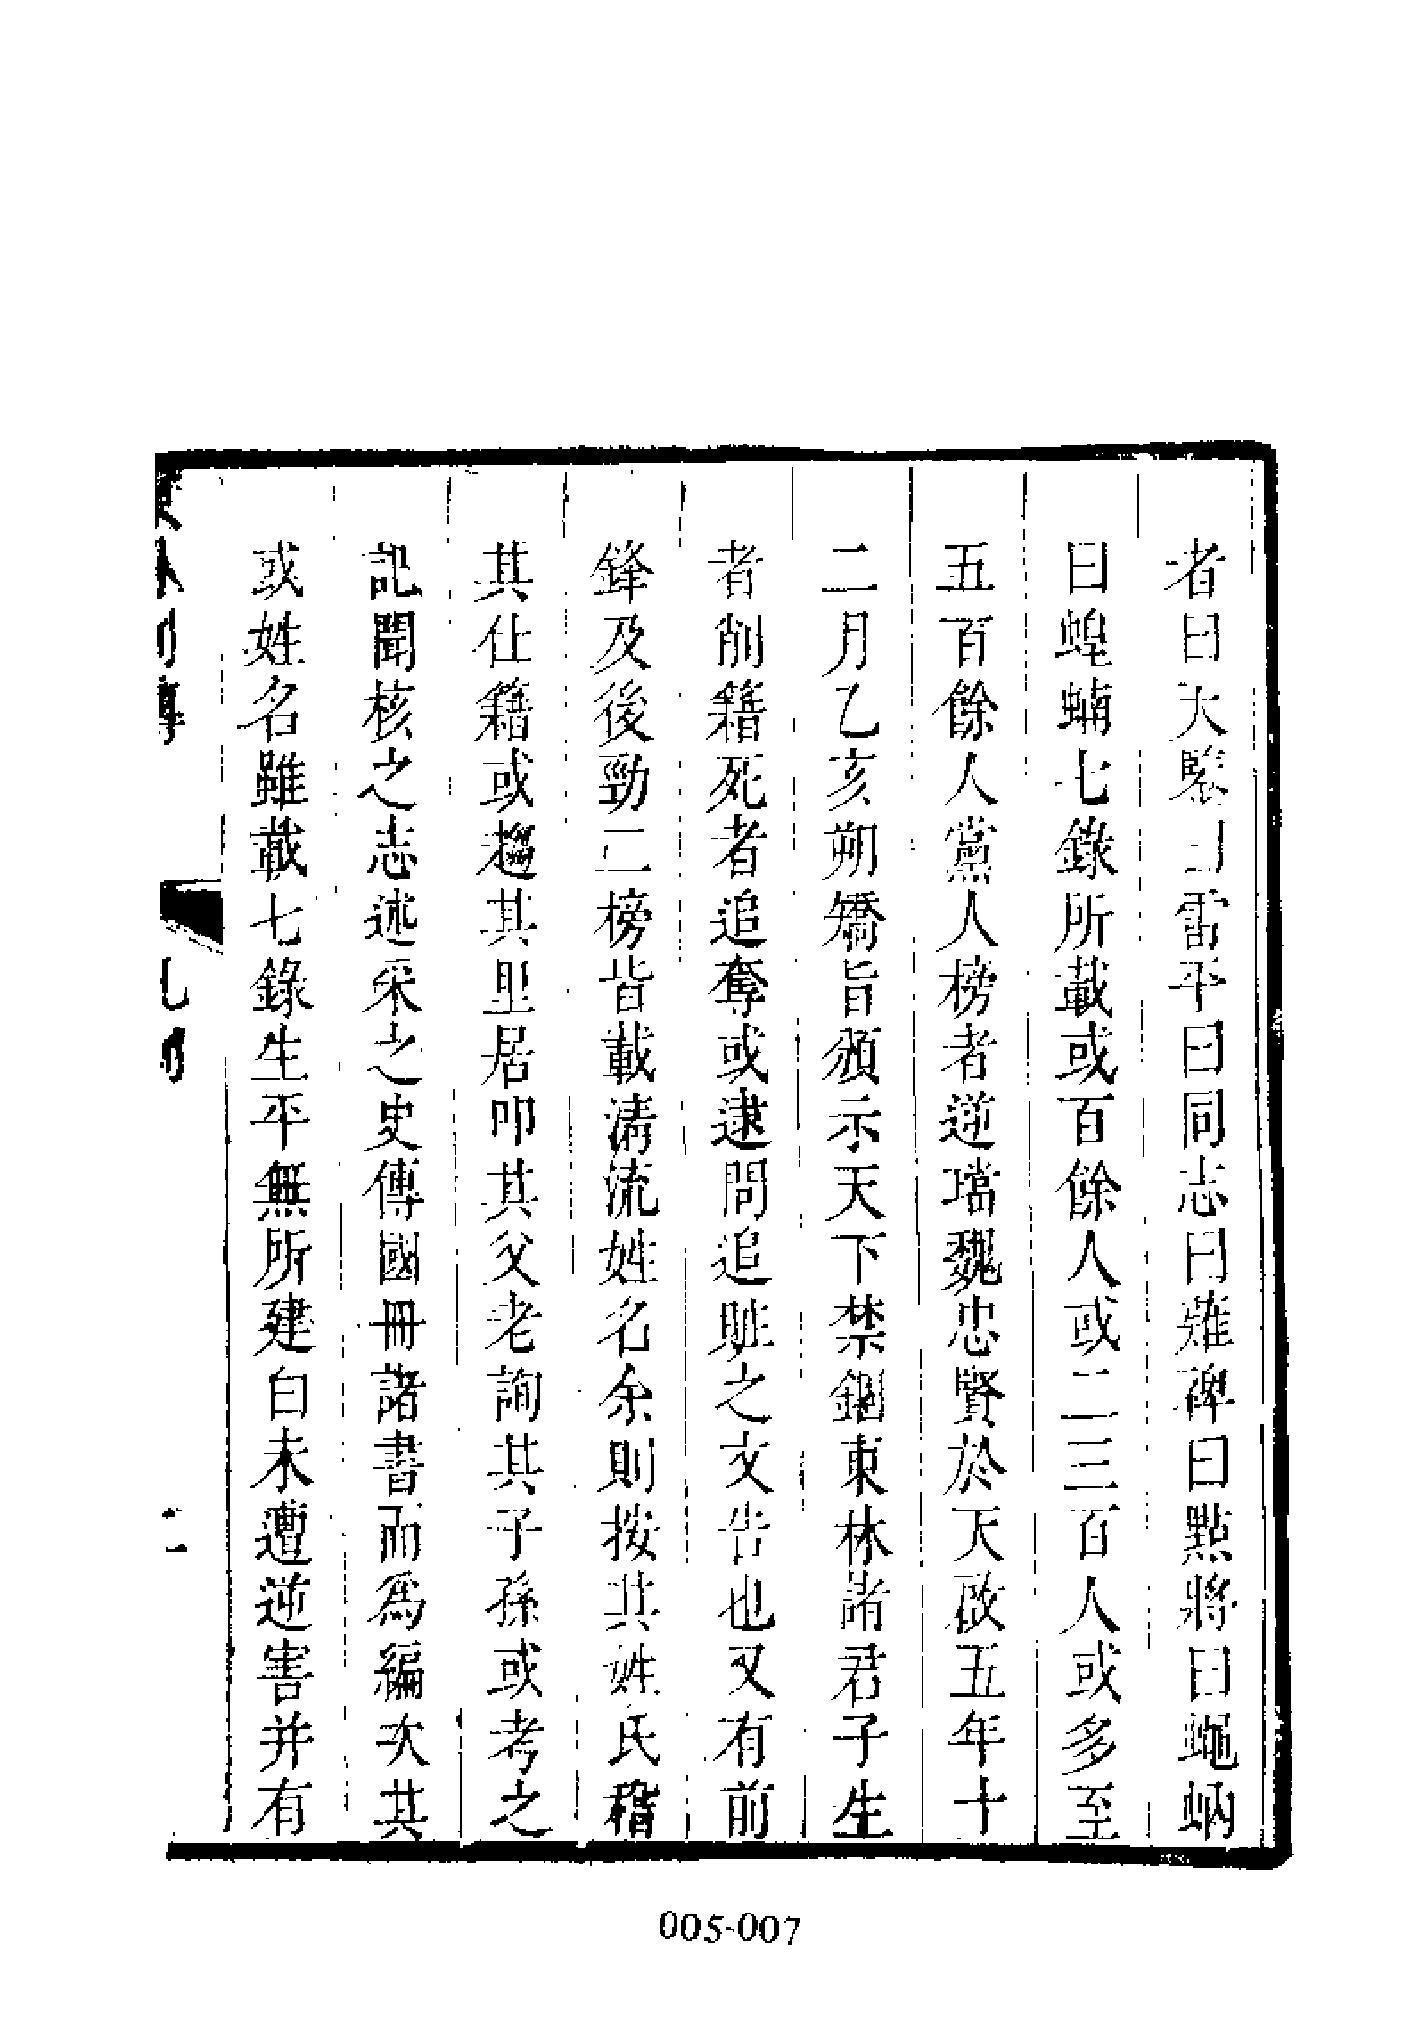 者曰天鑒曰雷平曰同志曰薙稗曰點將曰蠅蚋
曰蝗蝻七錄所載或百餘人或二三百人或多至
五百餘人黨人榜者逆璫魏忠賢於天啟五年十
二月乙亥朔矯旨頒示天下禁錮東林諸君子生
者削籍死者追奪或逮問追贓之文告也又有前
鋒及後勁二榜皆載清流姓名余則按其姓氏稽
其仕籍或趨其里居叩其父老詢其子孫或考之
記聞核之志述采之史傳國冊諸書而為編次其
或姓名雖載七錄生平無所建白未遭逆害并有
東林列傳
凡例
二
005-007